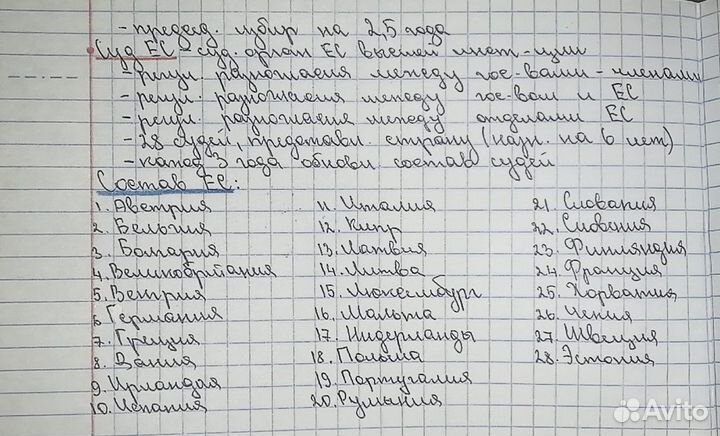 - председ. избир на 2,5 года
Суд ЕС - суд. орган ЕС высшей инст-ции
- регул. разногласия между гос-вами - членами
- регул. разногласия между гос-вом и ЕС
- регул. разногласия между отделами ЕС
- 28 судей, представл. страну (назн. на 6 лет)
- кажд. 3 года обновл состав судей
Состав ЕС:
1. Австрия
2. Бельгия
3. Болгария
4. Великобритания
5. Венгрия
6. Германия
7. Греция
8. Дания
9. Ирландая
10. Испания
11. Италия
12. Кипр
13. Латвия
14. Литва
15. Люксембург
16. Мальта
17. Нидерланды
18. Польша
19. Португалия
20. Румыния
21. Словакия
22. Словения
23. Финляндия
24. Франция
25. Хорватия
26. Чехия
27. Швеция
28. Эстония
Avito